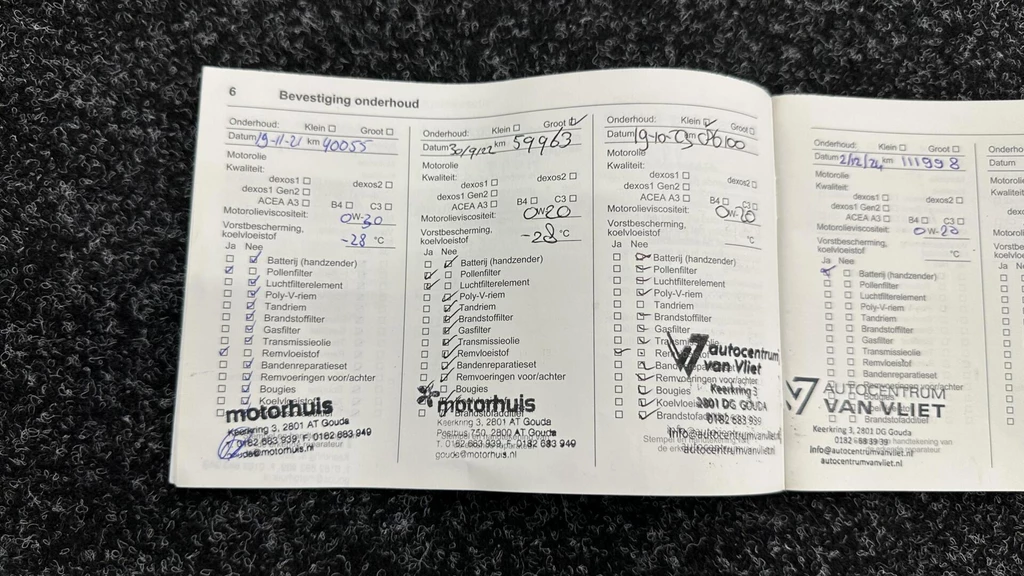 6 Bevestiging onderhoud
Onderhoud: Klein Groot
Datum 19-11-21 km 40055
Motorolie
Kwaliteit:
dexos1 dexos2
dexos1 Gen2
ACEA A3 B4 C3
Motorolieviscositeit: 0W-30
Vorstbescherming,
koelvloeistof -28 °C
Ja Nee
Batterij (handzender)
Pollenfilter
Luchtfilterelement
Poly-V-riem
Tandriem
Brandstoffilter
Gasfilter
Transmissieolie
Remvloeistof
Bandenreparatieset
Remvoeringen voor/achter
Bougies
Koelvloeistof
motorhuis
Keerkring 3, 2801 AT Gouda
0182 683 939, F. 0182 683 949
gouda@motorhuis.nl
Onderhoud: Klein Groot
Datum 30/9/22 km 59963
Motorolie
Kwaliteit:
dexos1 dexos2
dexos1 Gen2
ACEA A3 B4 C3
Motorolieviscositeit: 0W20
Vorstbescherming,
koelvloeistof -28 °C
Ja Nee
Batterij (handzender)
Pollenfilter
Luchtfilterelement
Poly-V-riem
Tandriem
Brandstoffilter
Gasfilter
Transmissieolie
Remvloeistof
Bandenreparatieset
Remvoeringen voor/achter
Bougies
motorhuis
Brandstofadditief
Keerkring 3, 2801 AT Gouda
Postbus 750, 2800 AT Gouda
T. 0182 683 939, F. 0182 683 949
gouda@motorhuis.nl
Onderhoud: Klein Groot
Datum 19-10- km
Motorolie
Kwaliteit:
dexos1 dexos2
dexos1 Gen2
ACEA A3 B4 C3
Motorolieviscositeit: 0W-20
Vorstbescherming,
koelvloeistof °C
Ja Nee
Batterij (handzender)
Pollenfilter
Luchtfilterelement
Poly-V-riem
Tandriem
Brandstoffilter
Gasfilter
autocentrum
van Vliet
Remvoeringen voor/achter
Bougies
Keerkring 3
2801 DG GOUDA
0182 683939
info@autocentrumvanvliet.nl
autocentrumvanvliet.nl
Onderhoud: Klein Groot
Datum 2/12/24 km 111998
Motorolie
Kwaliteit:
dexos1 dexos2
dexos1 Gen2
ACEA A3 B4 C3
Motorolieviscositeit: 0W-20
Vorstbescherming,
koelvloeistof °C
Ja Nee
Batterij (handzender)
Pollenfilter
Luchtfilterelement
Poly-V-riem
Tandriem
Brandstoffilter
Gasfilter
Transmissieolie
Remvloeistof
Bandenreparatieset
AUTOCENTRUM
VAN VLIET
Keerkring 3, 2801 DG Gouda
0182 68 39 39
Info@autocentrumvanvliet.nl
autocentrumvanvliet.nl